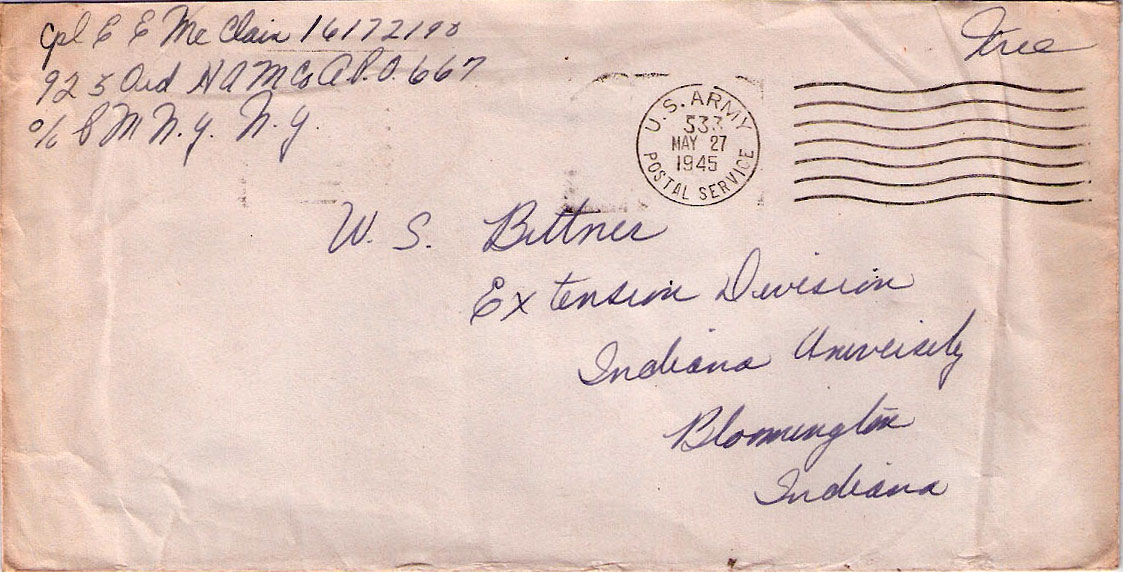 Cpl E E McClain 16172190
923 Ord H A M Co A.P.O. 667
c/o P M N.Y. N.Y.
Free
U.S. ARMY
533
MAY 27
1945
POSTAL SERVICE
W. S. Bittner
Extension Division
Indiana University
Bloomington
Indiana